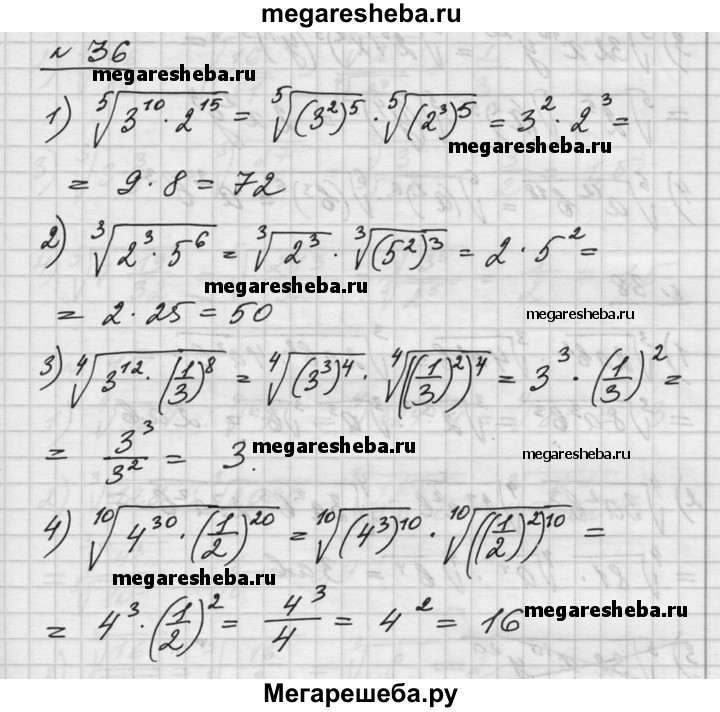 megaresheba.ru
№ 36
megaresheba.ru
1) ⁵√(3¹⁰ · 2¹⁵) = ⁵√((3²)⁵) · ⁵√((2³)⁵) = 3² · 2³ =
megaresheba.ru
= 9 · 8 = 72
2) ³√(2³ · 5⁶) = ³√(2³) · ³√((5²)³) = 2 · 5² =
megaresheba.ru
= 2 · 25 = 50
megaresheba.ru
3) ⁴√(3¹² · (1/3)⁸) = ⁴√((3³)⁴) · ⁴√(((1/3)²)⁴) = 3³ · (1/3)² =
= 3³/3² = 3.
megaresheba.ru
megaresheba.ru
4) ¹⁰√(4³⁰ · (1/2)²⁰) = ¹⁰√((4³)¹⁰) · ¹⁰√(((1/2)²)¹⁰) =
megaresheba.ru
= 4³ · (1/2)² = 4³/4 = 4² = 16
megaresheba.ru
Мегарешеба.ру